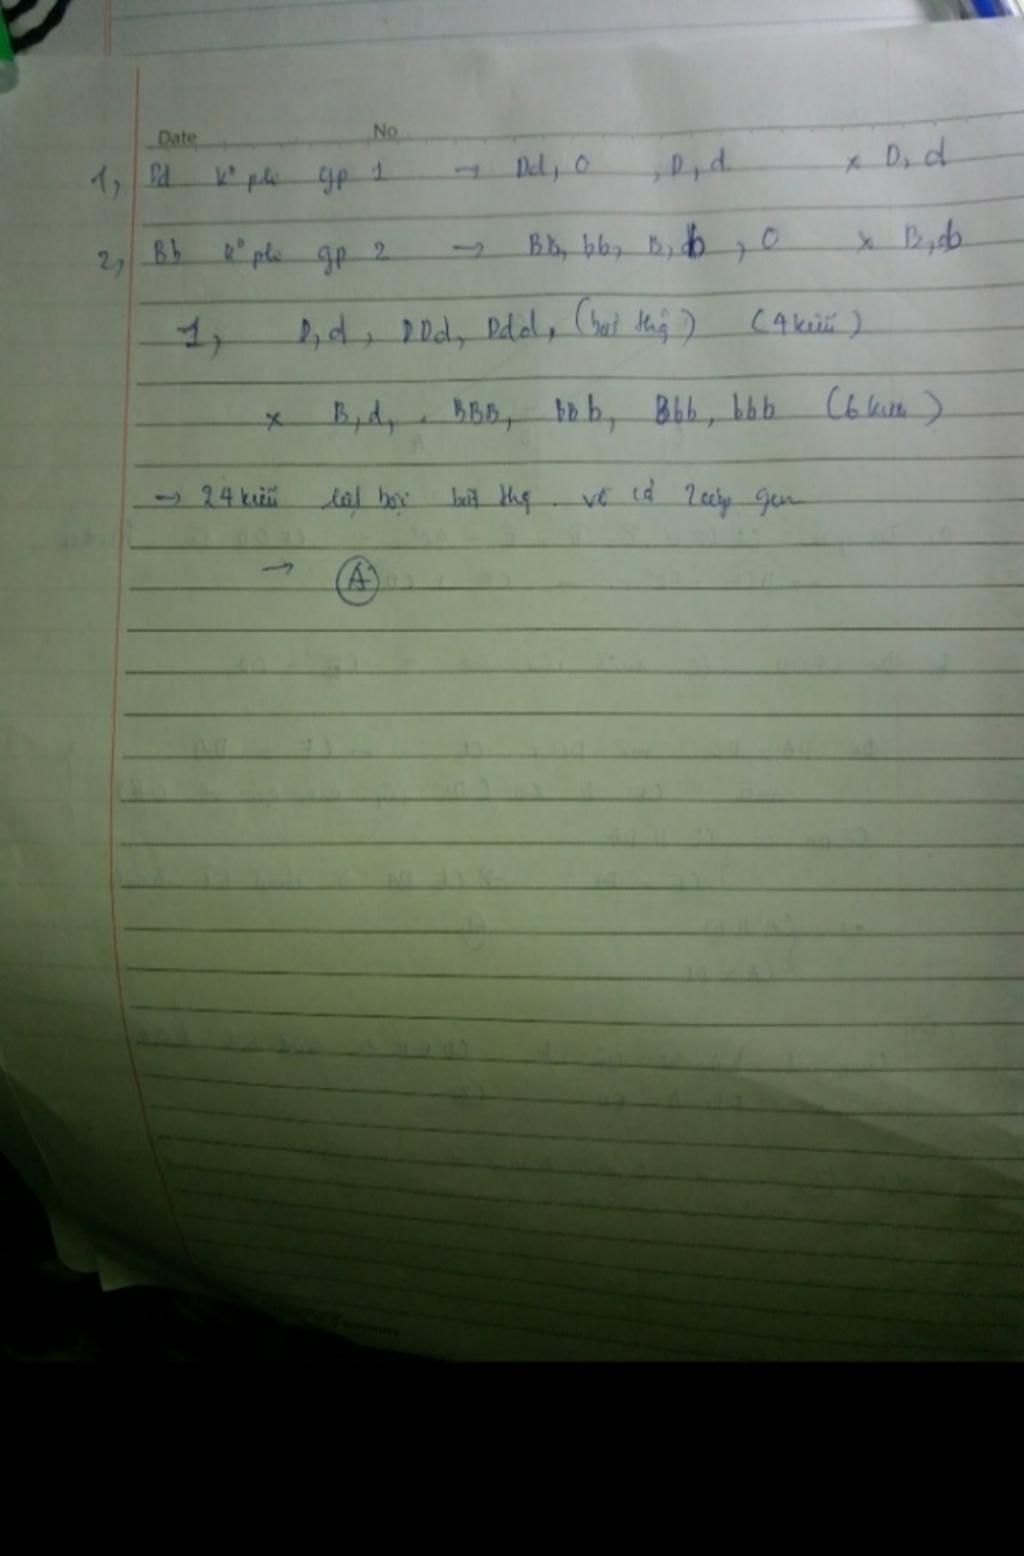 Date No
1, Dd k° pli gp 1 → Dd, 0 , D, d × D, d
2, Bb k° pli gp 2 → BB, bb, B, b , 0 × B, b
1, D, d, DDd, Ddd, (bất thg) (4 kiểu)
× B, d, . BBB, BBb, Bbb, bbb (6 kiểu)
→ 24 kiểu bất thg . về cả 2 cặp gen
→ A